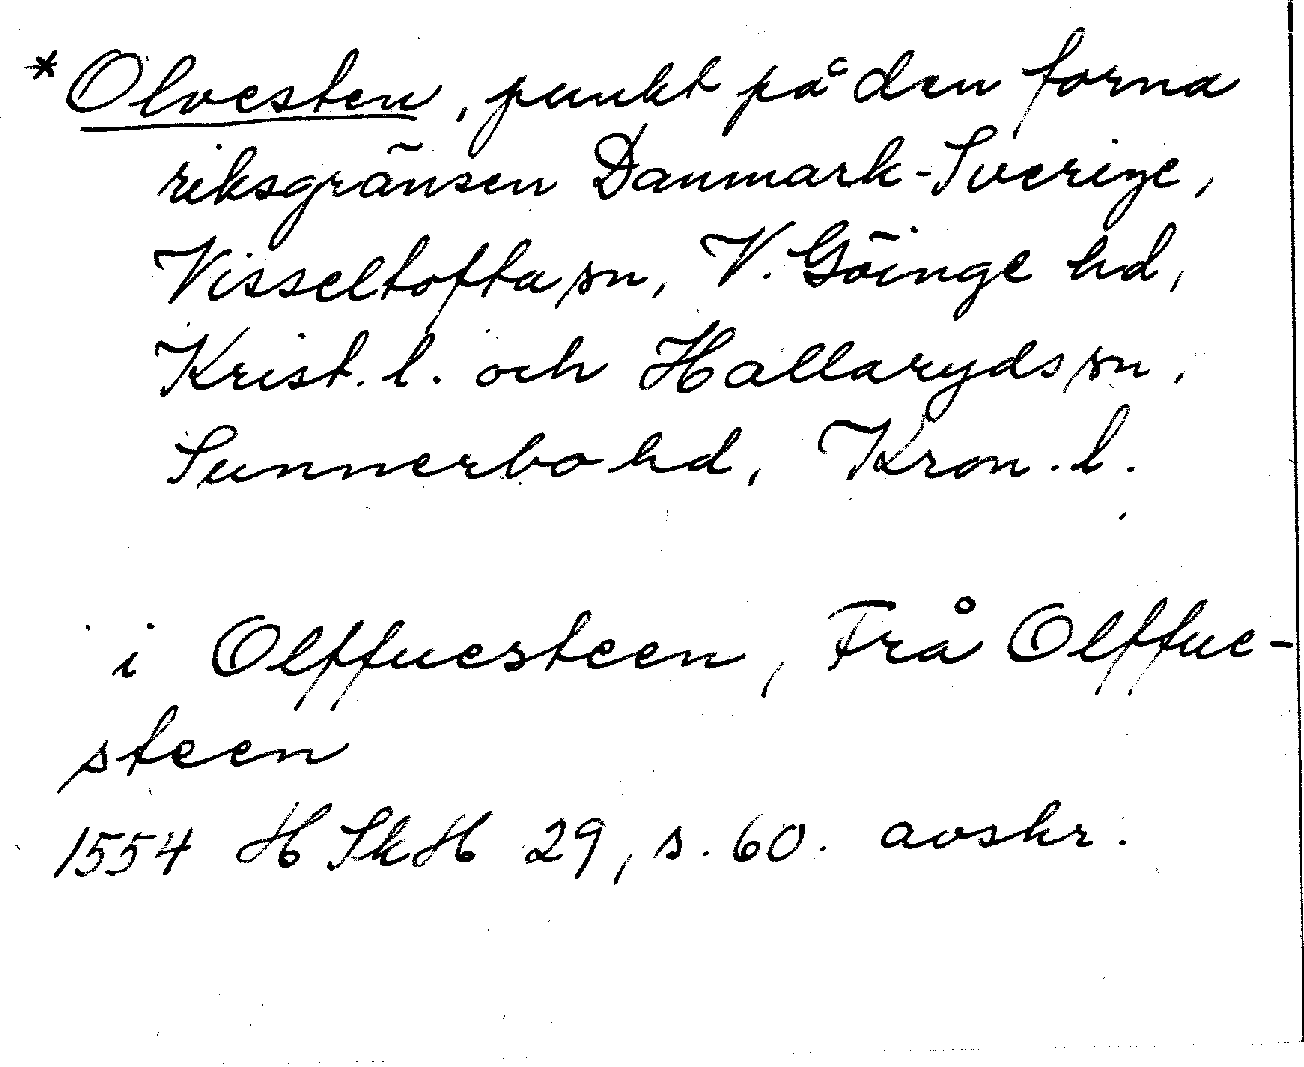 *Olvesten, punkt på den forna
riksgränsen Danmark-Sverige,
Visseltofta sn, V. Göinge hd,
Krist. l. och Hallaryds sn,
Sunnerbo hd, Kron. l.
i Olffuesteen, Frå Olffue-
steen
1554 HSkH 29, s. 60. avskr.